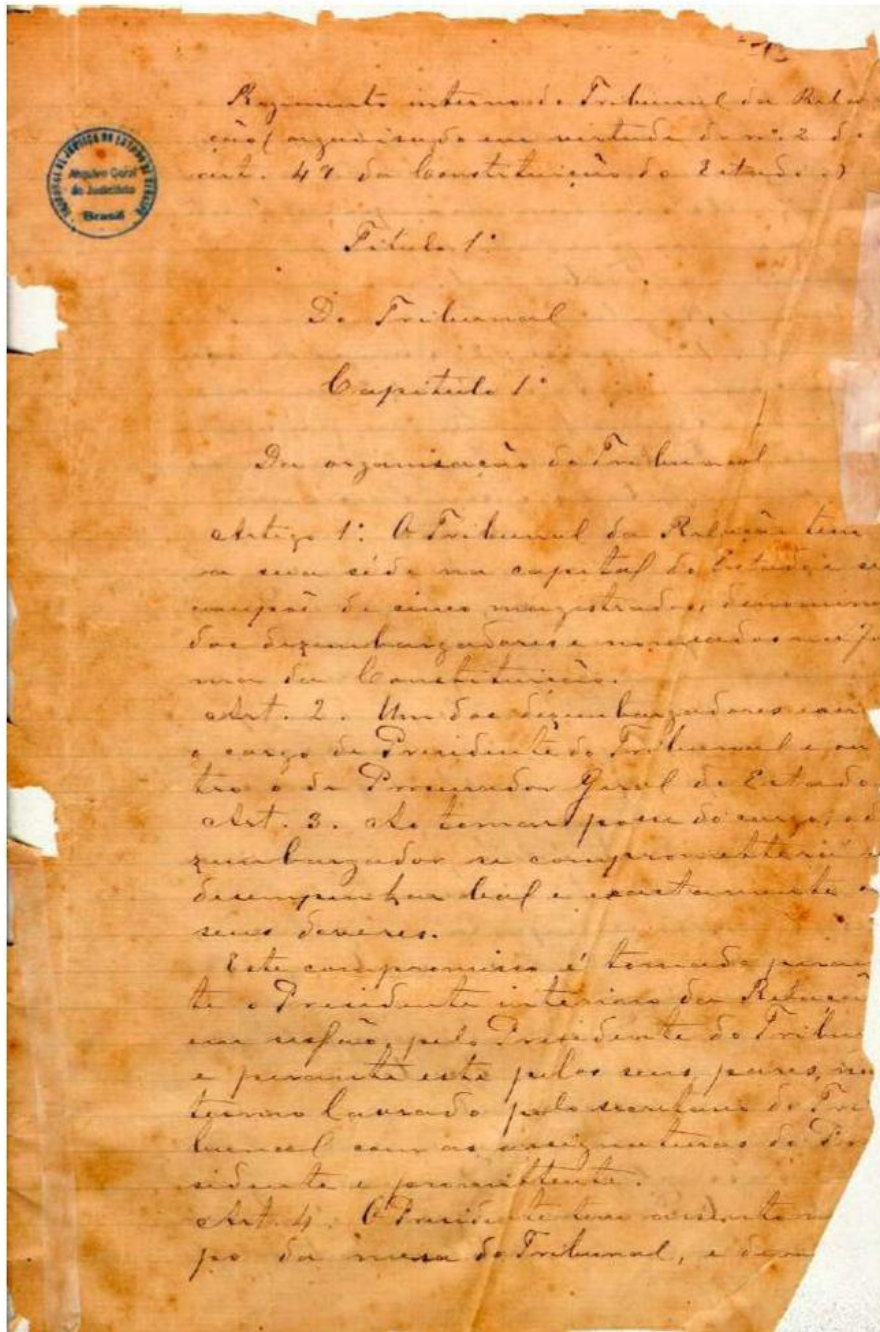 Regimento interno do Tribunal da Rela
ção (organisado em virtude do nº. 2 do
art. 47 da Constituição do Estado.)
TRIBUNAL DE JUSTIÇA DO ESTADO DE SERGIPE
Arquivo Geral
do Judiciário
Brasil
Titulo 1º
Do Tribunal
Capitulo 1º
Da organisação do Tribunal
Artigo 1º: O Tribunal da Relação tem
a sua séde na capital do Estado e se
compõe de cinco magistrados, denomina
dos dezembargadores e nomeados na fo
ma da Constituição.
Art. 2. Um dos dezembargadores exer
o cargo de Presidente do Tribunal e ou
tro o de Procurador Geral do Estado
Art. 3. Ao tomar posse do cargo, o d
zembargador se comprometterá
desempenhar leal e exactamente o
seus deveres.
Este compromisso é tomado peran
te o Presidente interino da Relação
em sessão, pelo Presidente do Tribu
e perante este pelos seus pares, no
termo lavrado pelo secretario do Tri
bunal com as assignaturas do Pre
sidente e promittente.
Art. 4. O Presidente tem assento no
po da mesa do Tribunal, e